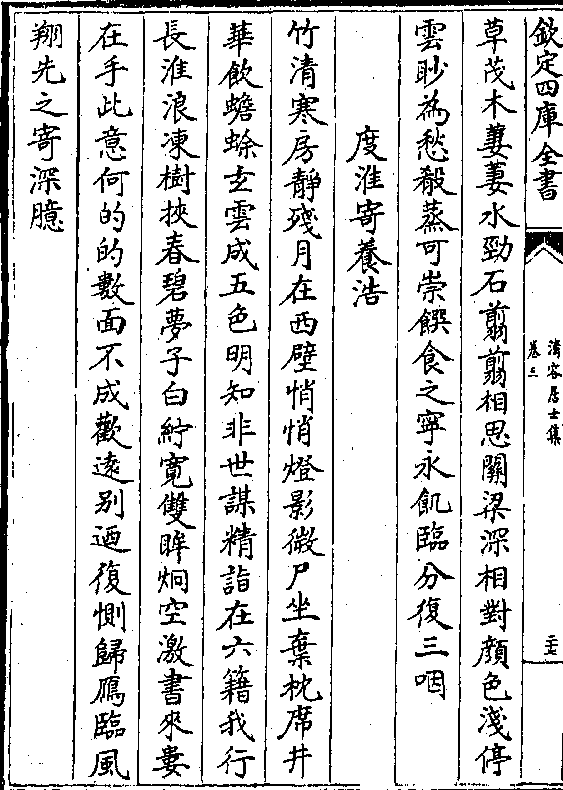 欽定四庫全書
清容居士集
卷三
二十七
草茂木萋萋水勁石翦翦相思關梁深相對顔色淺停
雲眇為愁殽蒸可崇饌食之寧永飢臨分復三咽
度淮寄養浩
竹清寒房靜殘月在西壁悄悄燈影微尸坐棄枕席井
華飲蟾蜍玄雲成五色明知非世謀精詣在六籍我行
長淮浪凍樹挾春碧夢子白紵寛雙眸炯空激書來婁
在手此意何的的數面不成歡遠別迺復惻歸鴈臨風
翔先之寄深臆